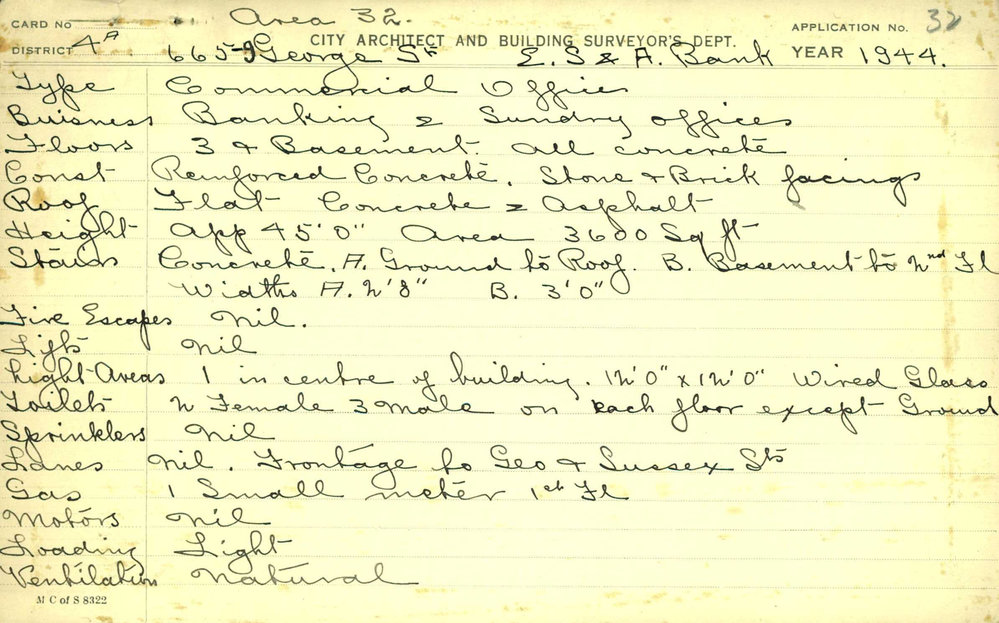 CARD No Area 32. APPLICATION No. 32
DISTRICT 4A CITY ARCHITECT AND BUILDING SURVEYOR'S DEPT. YEAR 1944.
665-9 George St E. S & A. Bank
Type Commercial Offices
Buisness Banking & Sundry offices
Floors 3 & Basement. All concrete
Const Reinforced Concrete. Stone & Brick facings
Roof Flat Concrete & Asphalt
Height App 45'0" Area 3600 Sq ft
Stairs Concrete. A. Ground to Roof. B. Basement to 2nd Fl
Widths A. 2'8" B. 3'0"
Fire Escapes Nil.
Lifts Nil
Light Areas 1 in centre of building. 12'0" x 12'0" Wired Glass
Toilets 2 Female 3 Male on each floor except Ground
Sprinklers Nil
Lanes Nil. Frontage to Geo & Sussex Sts
Gas 1 Small meter 1st Fl
Motors Nil
Loading Light
Ventilation Natural
M C of S 8322